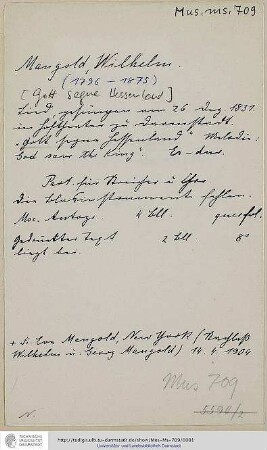 Mus. ms. 709
Mangold, Wilhelm.
(1796 - 1875)
[Gott segne Hessenland]
Lied gesungen am 26 Dez 1831
im Hoftheater zu Darmstadt.
"Gott segne Hessenland" Melodie:
God save the King". Es-dur.
Part. für Streicher u. Chor
Die Blasinstrumente fehlen.
Msc. Autogr. 4 Bll. querfol.
Gedruckter Text 2 Bll 8°
liegt bei.
Mangold, New York (Nachlaß
Wilhelm u. Georg Mangold) 14. 4. 1904
Mus 709
5596/2
N.
TECHNISCHE UNIVERSITÄT DARMSTADT
http://tudigit.ulb.tu-darmstadt.de/show/Mus-Ms-709/0001
Universitäts- und Landesbibliothek Darmstadt